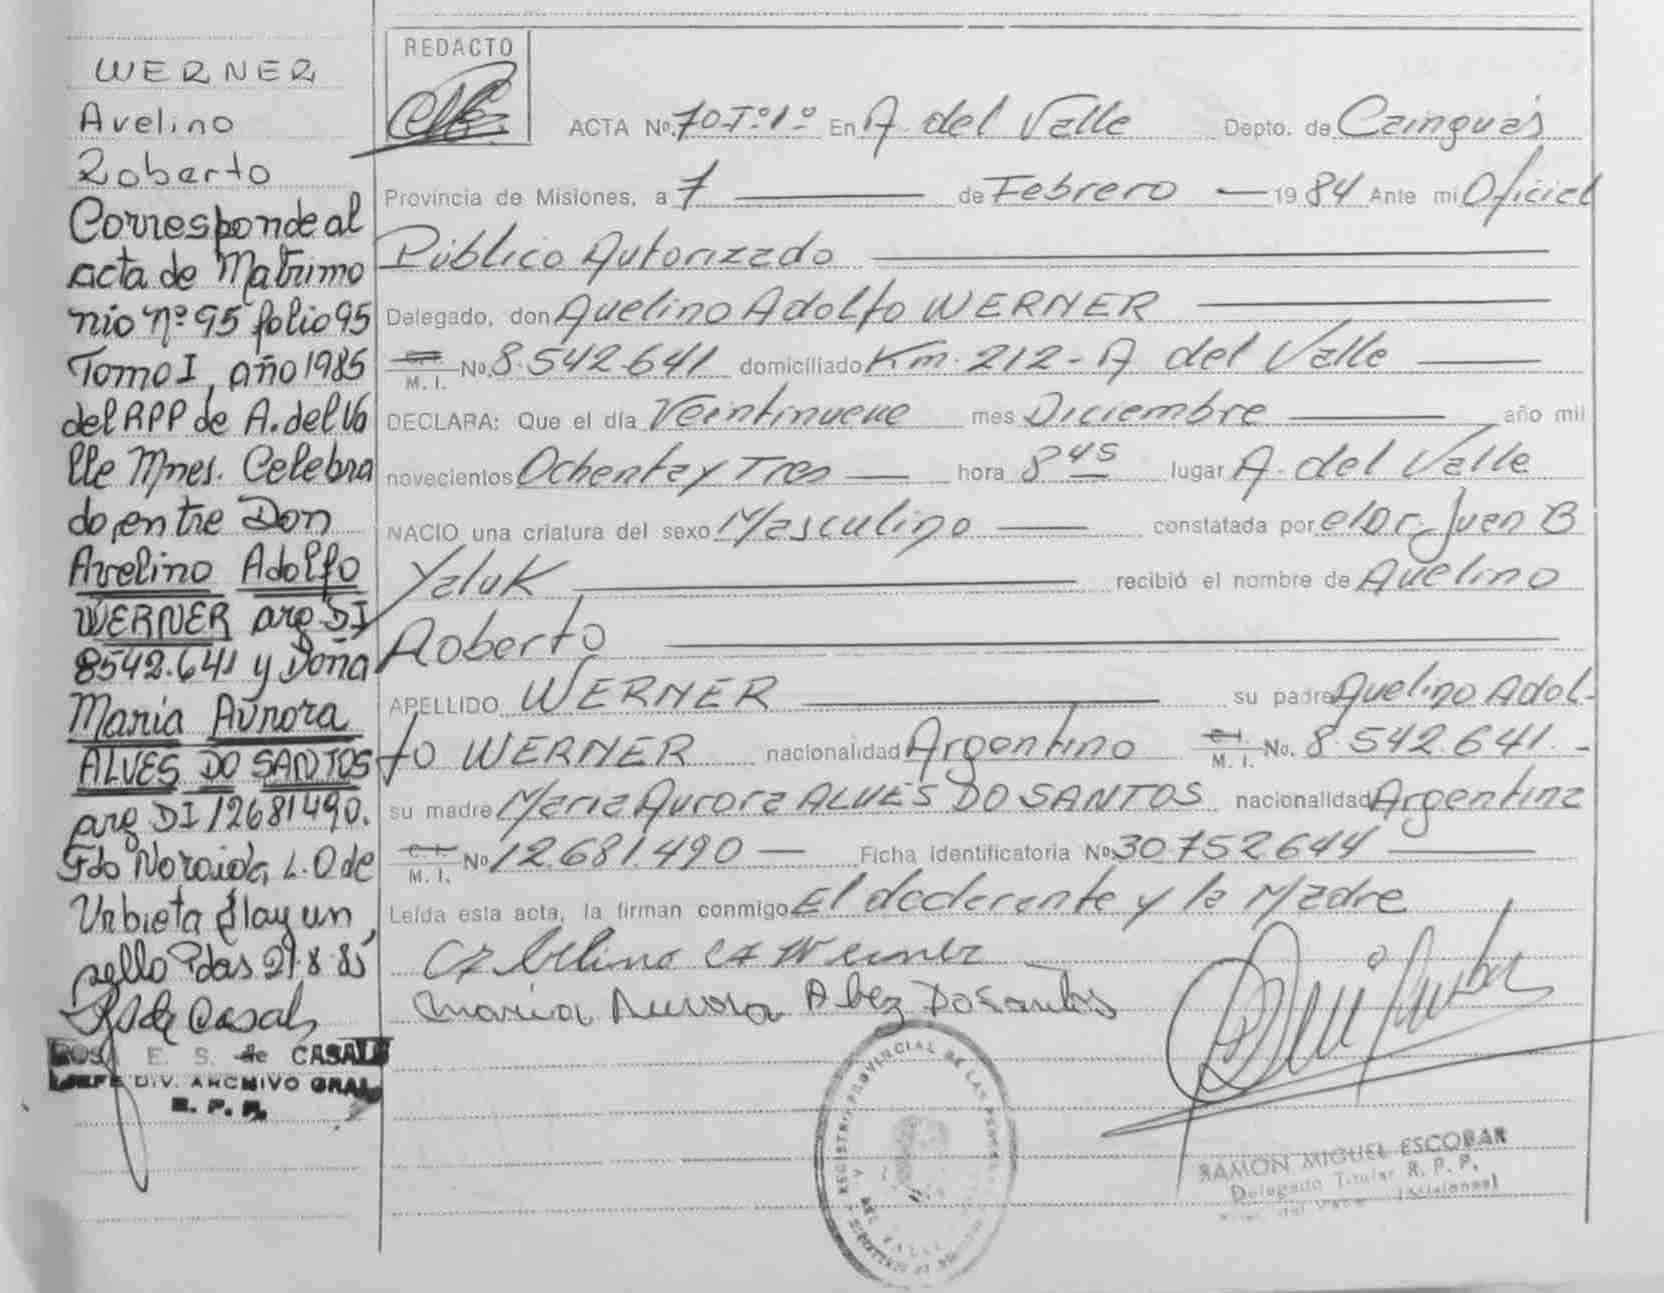 WERNER
Avelino
Roberto
Corresponde al
acta de Matrimo
nio nº 95 folio 95
Tomo I, año 1985
del RPP de A. del Va
lle Mnes. Celebra
do, entre Don
Avelino Adolfo
WERNER arg DI
8542.641 y Doña
Maria Aurora
ALVES DO SANTOS
arg DI 12681490.
Fdo Noraida L. O de
Urbieta Hay un
sello Pdas 21.8.85
ROSA E. S. de CASALS
JEFE DIV. ARCHIVO GRAL
R. P. P.
REDACTO
ACTA No. 70-Tº1º En A. del Valle Depto. de Cainguás
Provincia de Misiones, a 7 de Febrero 1984 Ante mi Oficial
Público Autorizado
Delegado, don Avelino Adolfo WERNER
C. I. M. I. No. 8.542.641 domiciliado Km. 212 - A del Valle
DECLARA: Que el día Veintinueve mes Diciembre año mil
novecientos Ochenta y Tres hora 8 45 lugar A. del Valle
NACIO una criatura del sexo Masculino constatada por el Dr. Juan B
Yaluk recibió el nombre de Avelino
Roberto
APELLIDO WERNER su padre Avelino Adol-
fo WERNER nacionalidad Argentino C. I. M. I. No. 8.542.641.-
su madre Maria Aurora ALVES DO SANTOS nacionalidad Argentina
C. I. M. I. No 12.681.490 Ficha identificatoria No 30752644
Leída esta acta, la firman conmigo El declarante y la Madre
Maria Aurora Albez Do Santos
REGISTRO PROVINCIAL DE LAS PERSONAS
DEL VALLE
RAMON MIGUEL ESCOBAR
Delegado Titular R. P. P.
del Valle (Misiones)